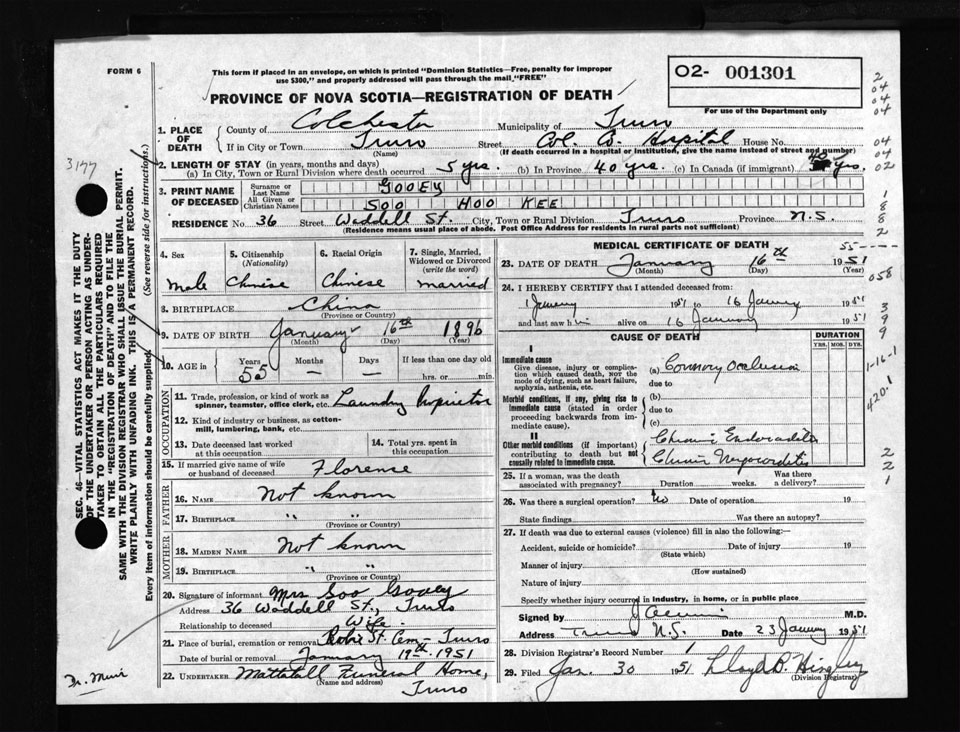 FORM 6
This form if placed in an envelope, on which is printed "Dominion Statistics—Free, penalty for improper
use $300," and properly addressed will pass through the mail, "FREE"
O2- 001301
For use of the Department only
PROVINCE OF NOVA SCOTIA—REGISTRATION OF DEATH
1. PLACE OF DEATH
County of Colchester Municipality of Truro
If in City or Town Truro Street Col. Co. Hospital House No.
(Name) (If death occurred in a hospital or institution, give the name instead of street and number)
2. LENGTH OF STAY (in years, months and days)
(a) In City, Town or Rural Division where death occurred 5 yrs. (b) In Province 40 yrs. (c) In Canada (if immigrant) 40 yrs.
3. PRINT NAME OF DECEASED
Surname or Last Name GOOEY
All Given or Christian Names SOO HOO KEE
RESIDENCE No. 36 Street Waddell St. City, Town or Rural Division Truro Province N.S.
(Residence means usual place of abode. Post Office Address for residents in rural parts not sufficient)
4. Sex
male
5. Citizenship
(Nationality)
Chinese
6. Racial Origin
Chinese
7. Single, Married, Widowed or Divorced
(write the word)
married
8. BIRTHPLACE China
(Province or Country)
9. DATE OF BIRTH January 16th 1896
(Month) (Day) (Year)
10. AGE in Years 55 Months — Days — If less than one day old
hrs. or min.
OCCUPATION
11. Trade, profession, or kind of work as
spinner, teamster, office clerk, etc. Laundry Proprietor
12. Kind of industry or business, as cotton-
mill, lumbering, bank, etc.
13. Date deceased last worked
at this occupation
14. Total yrs. spent in
this occupation
15. If married give name of wife
or husband of deceased Florence
FATHER
16. NAME Not known
17. BIRTHPLACE " "
(Province or Country)
MOTHER
18. MAIDEN NAME Not known
19. BIRTHPLACE " "
(Province or Country)
20. Signature of informant Mrs Soo Gooey
Address 36 Waddell St., Truro
Relationship to deceased Wife.
21. Place of burial, cremation or removal Robie St. Cem- Truro
Date of burial or removal January 19th. 1951
22. UNDERTAKER Mattatall Funeral Home,
(Name and address) Truro
MEDICAL CERTIFICATE OF DEATH
23. DATE OF DEATH January 16th 1951
(Month) (Day) (Year)
24. I HEREBY CERTIFY that I attended deceased from:
1 January 1951 to 16 January 1951
and last saw him alive on 16 January 1951
CAUSE OF DEATH
DURATION
YRS. MOS. DYS.
I
Immediate cause
Give disease, injury or complication
which caused death, NOT the
mode of dying, such as heart failure,
asphyxia, asthenia, etc.
(a) Coronary Occlusion
due to
Morbid conditions, if any, giving rise to
immediate cause (stated in order
proceeding backwards from immediate
cause).
(b)
due to
(c)
II
Other morbid conditions (if important)
contributing to death but not
causally related to immediate cause.
Chronic Endocarditis
Chronic Myocarditis
25. If a woman, was the death
associated with pregnancy? Duration weeks. Was there
a delivery?
26. Was there a surgical operation? No Date of operation 19
State findings Was there an autopsy?
27. If death was due to external causes (violence) fill in also the following:—
Accident, suicide or homicide? Date of injury 19
(State which)
Manner of injury
(How sustained)
Nature of injury
Specify whether injury occurred in industry, in home, or in public place
Signed by M.D.
Address Truro N.S. Date 23 January 1951
28. Division Registrar's Record Number 1
29. Filed Jan. 30 1951 Lloyd D. Hingley
(Division Registrar)
SEC. 46—VITAL STATISTICS ACT MAKES IT THE DUTY
OF THE UNDERTAKER OR PERSON ACTING AS UNDER-
TAKER TO OBTAIN ALL THE PARTICULARS REQUIRED
IN THE "REGISTRATION OF DEATH" AND TO FILE THE
SAME WITH THE DIVISION REGISTRAR WHO SHALL ISSUE THE BURIAL PERMIT.
WRITE PLAINLY WITH UNFADING INK. THIS IS A PERMANENT RECORD.
Every item of information should be carefully supplied. (See reverse side for instructions.)
3177
Dr. Muir
2
04
04
04
04
04
02
1
8
8
2
55
058
3
9
9
1-16-1
4201
2
2
1